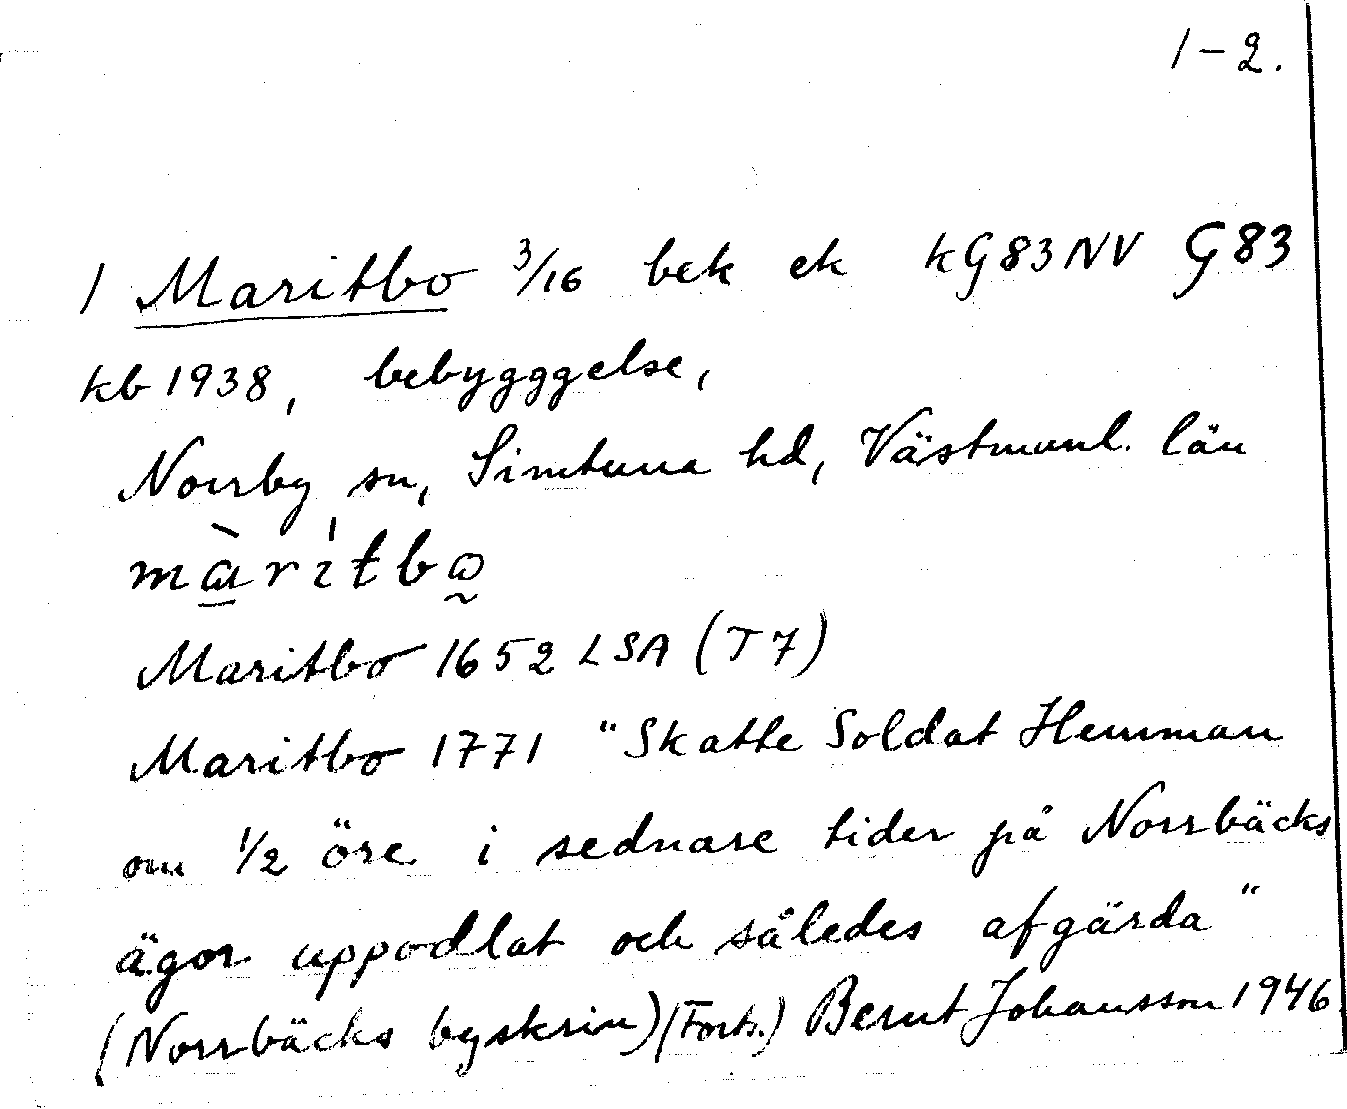 1-2.
1 Maritbo 3/16 bek ek kG83NV G83
kb 1938, bebygggelse,
Norrby sn, Simtuna hd, Västmanl. län
màrítbo
Maritbo 1652 LSA (T7)
Maritbo 1771 "Skatte Soldat Hemman
om 1/2 öre i sednare tider på Norrbäcks
ägor uppodlat och således afgärda"
(Norrbäcks byskrin) (Forts.) Bernt Johansson 1946